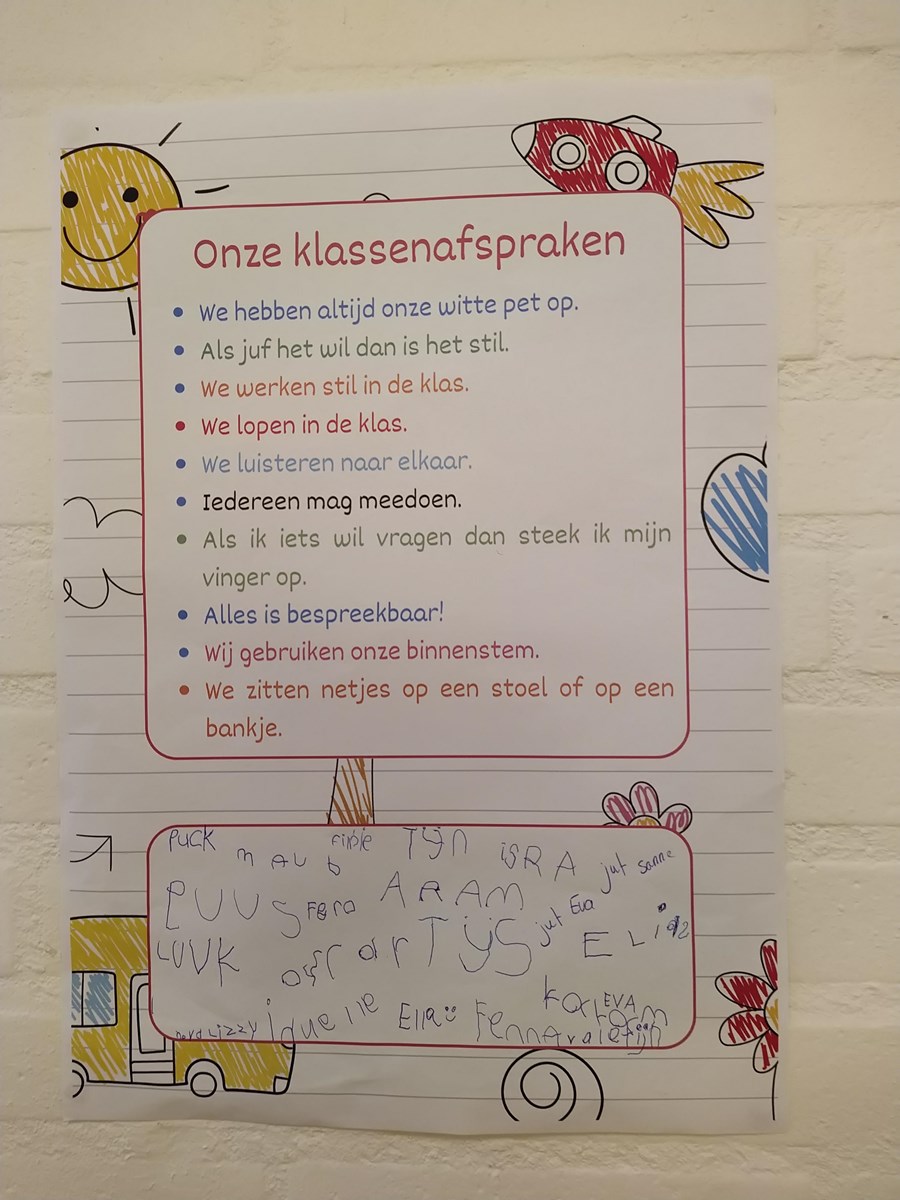 Onze klassenafspraken
We hebben altijd onze witte pet op.
Als juf het wil dan is het stil.
We werken stil in de klas.
We lopen in de klas.
We luisteren naar elkaar.
Iedereen mag meedoen.
Als ik iets wil vragen dan steek ik mijn
vinger op.
Alles is bespreekbaar!
Wij gebruiken onze binnenstem.
We zitten netjes op een stoel of op een
bankje.
PUCK
Tijn
iSRA
juf Sanne
ARAM
juf Eva
TijS
LUUK
EVA
Lizzy
Ella
Fenna